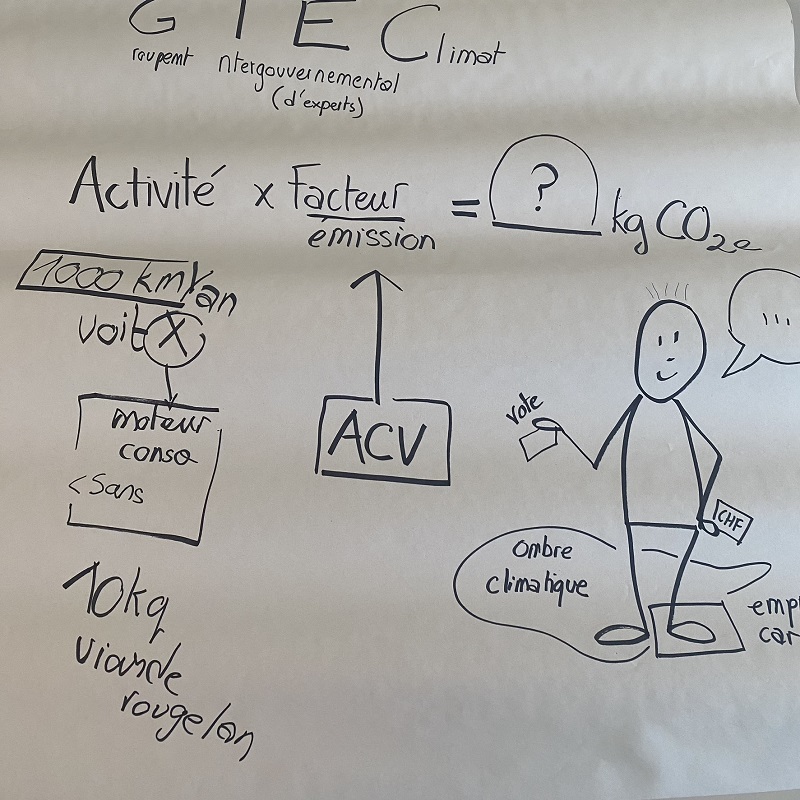 G I E Climat
roupemt ntergouvernemental
(d'experts)
Activité x Facteur émission = ? kg CO2e
1000 km/an
voit X
moteur
conso
<5ans
ACV
10kg
viande
rouge/an
...
vote
CHF
ombre
climatique